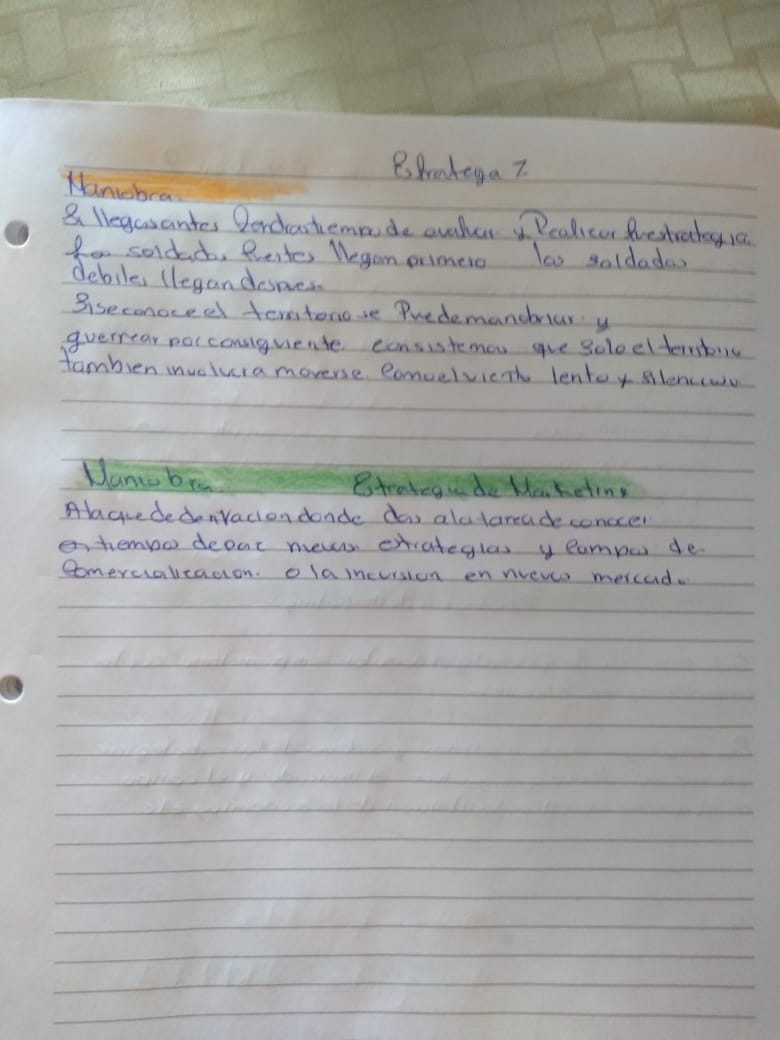 Estratega 7.
Maniobra.
Si llegas antes tendras tiempo de evaluar y Realizar tu estrategia
Los soldados fuertes llegan primero los soldados
debiles llegan despues.
Si se conoce el territorio se Puede maniobriar y
guerrear por consiguiente. que solo el territorio
tambien involucra moverse Como el viento lento y silencioso
Maniobra Estrategia de Marketing
Ataque de donde das a la tarea de conocer
en tiempo estrategias y campos de
Comercialización. o la incursion en nuevos mercado.